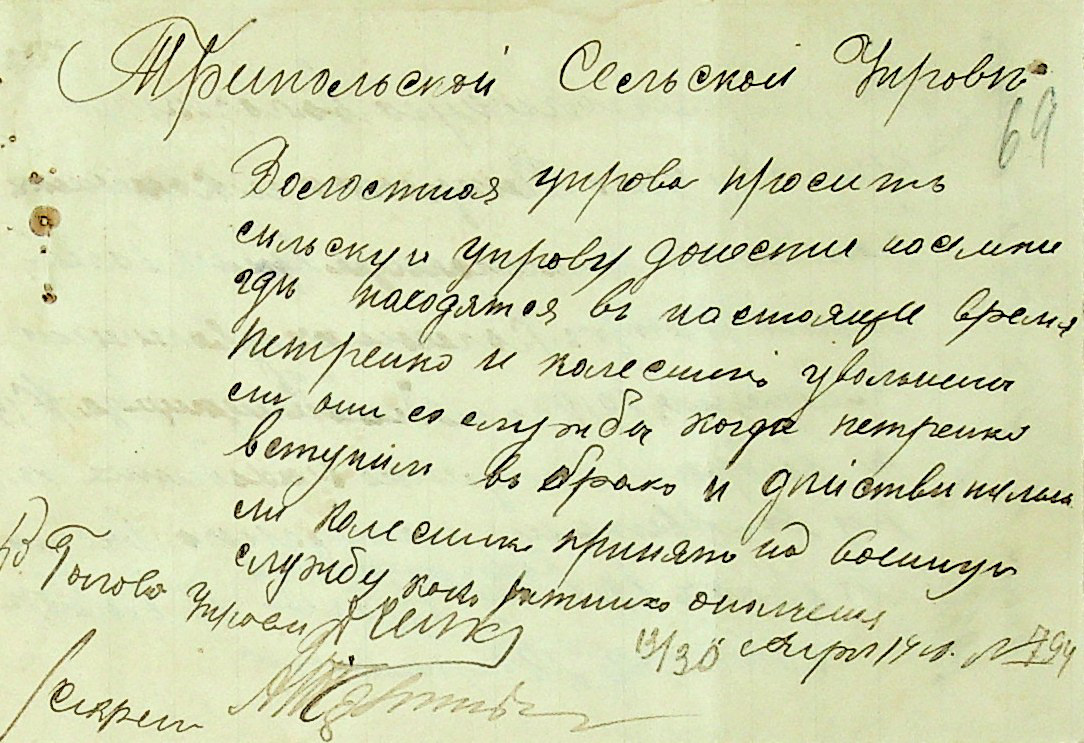 Трипольской Сельской Управѣ
69
Волостная управа просить
сильскую управу донести
гдѣ находятся въ настояще время
Петренко и Колесникъ уволены
ли они со службы когда петренко
вступилъ въ бракъ и дѣйствительно
ли Колесникъ принятъ на военную
службу какъ ратникъ ополченія
Голова Управи
13/30 Апрл 19 г. № 794
Секрет